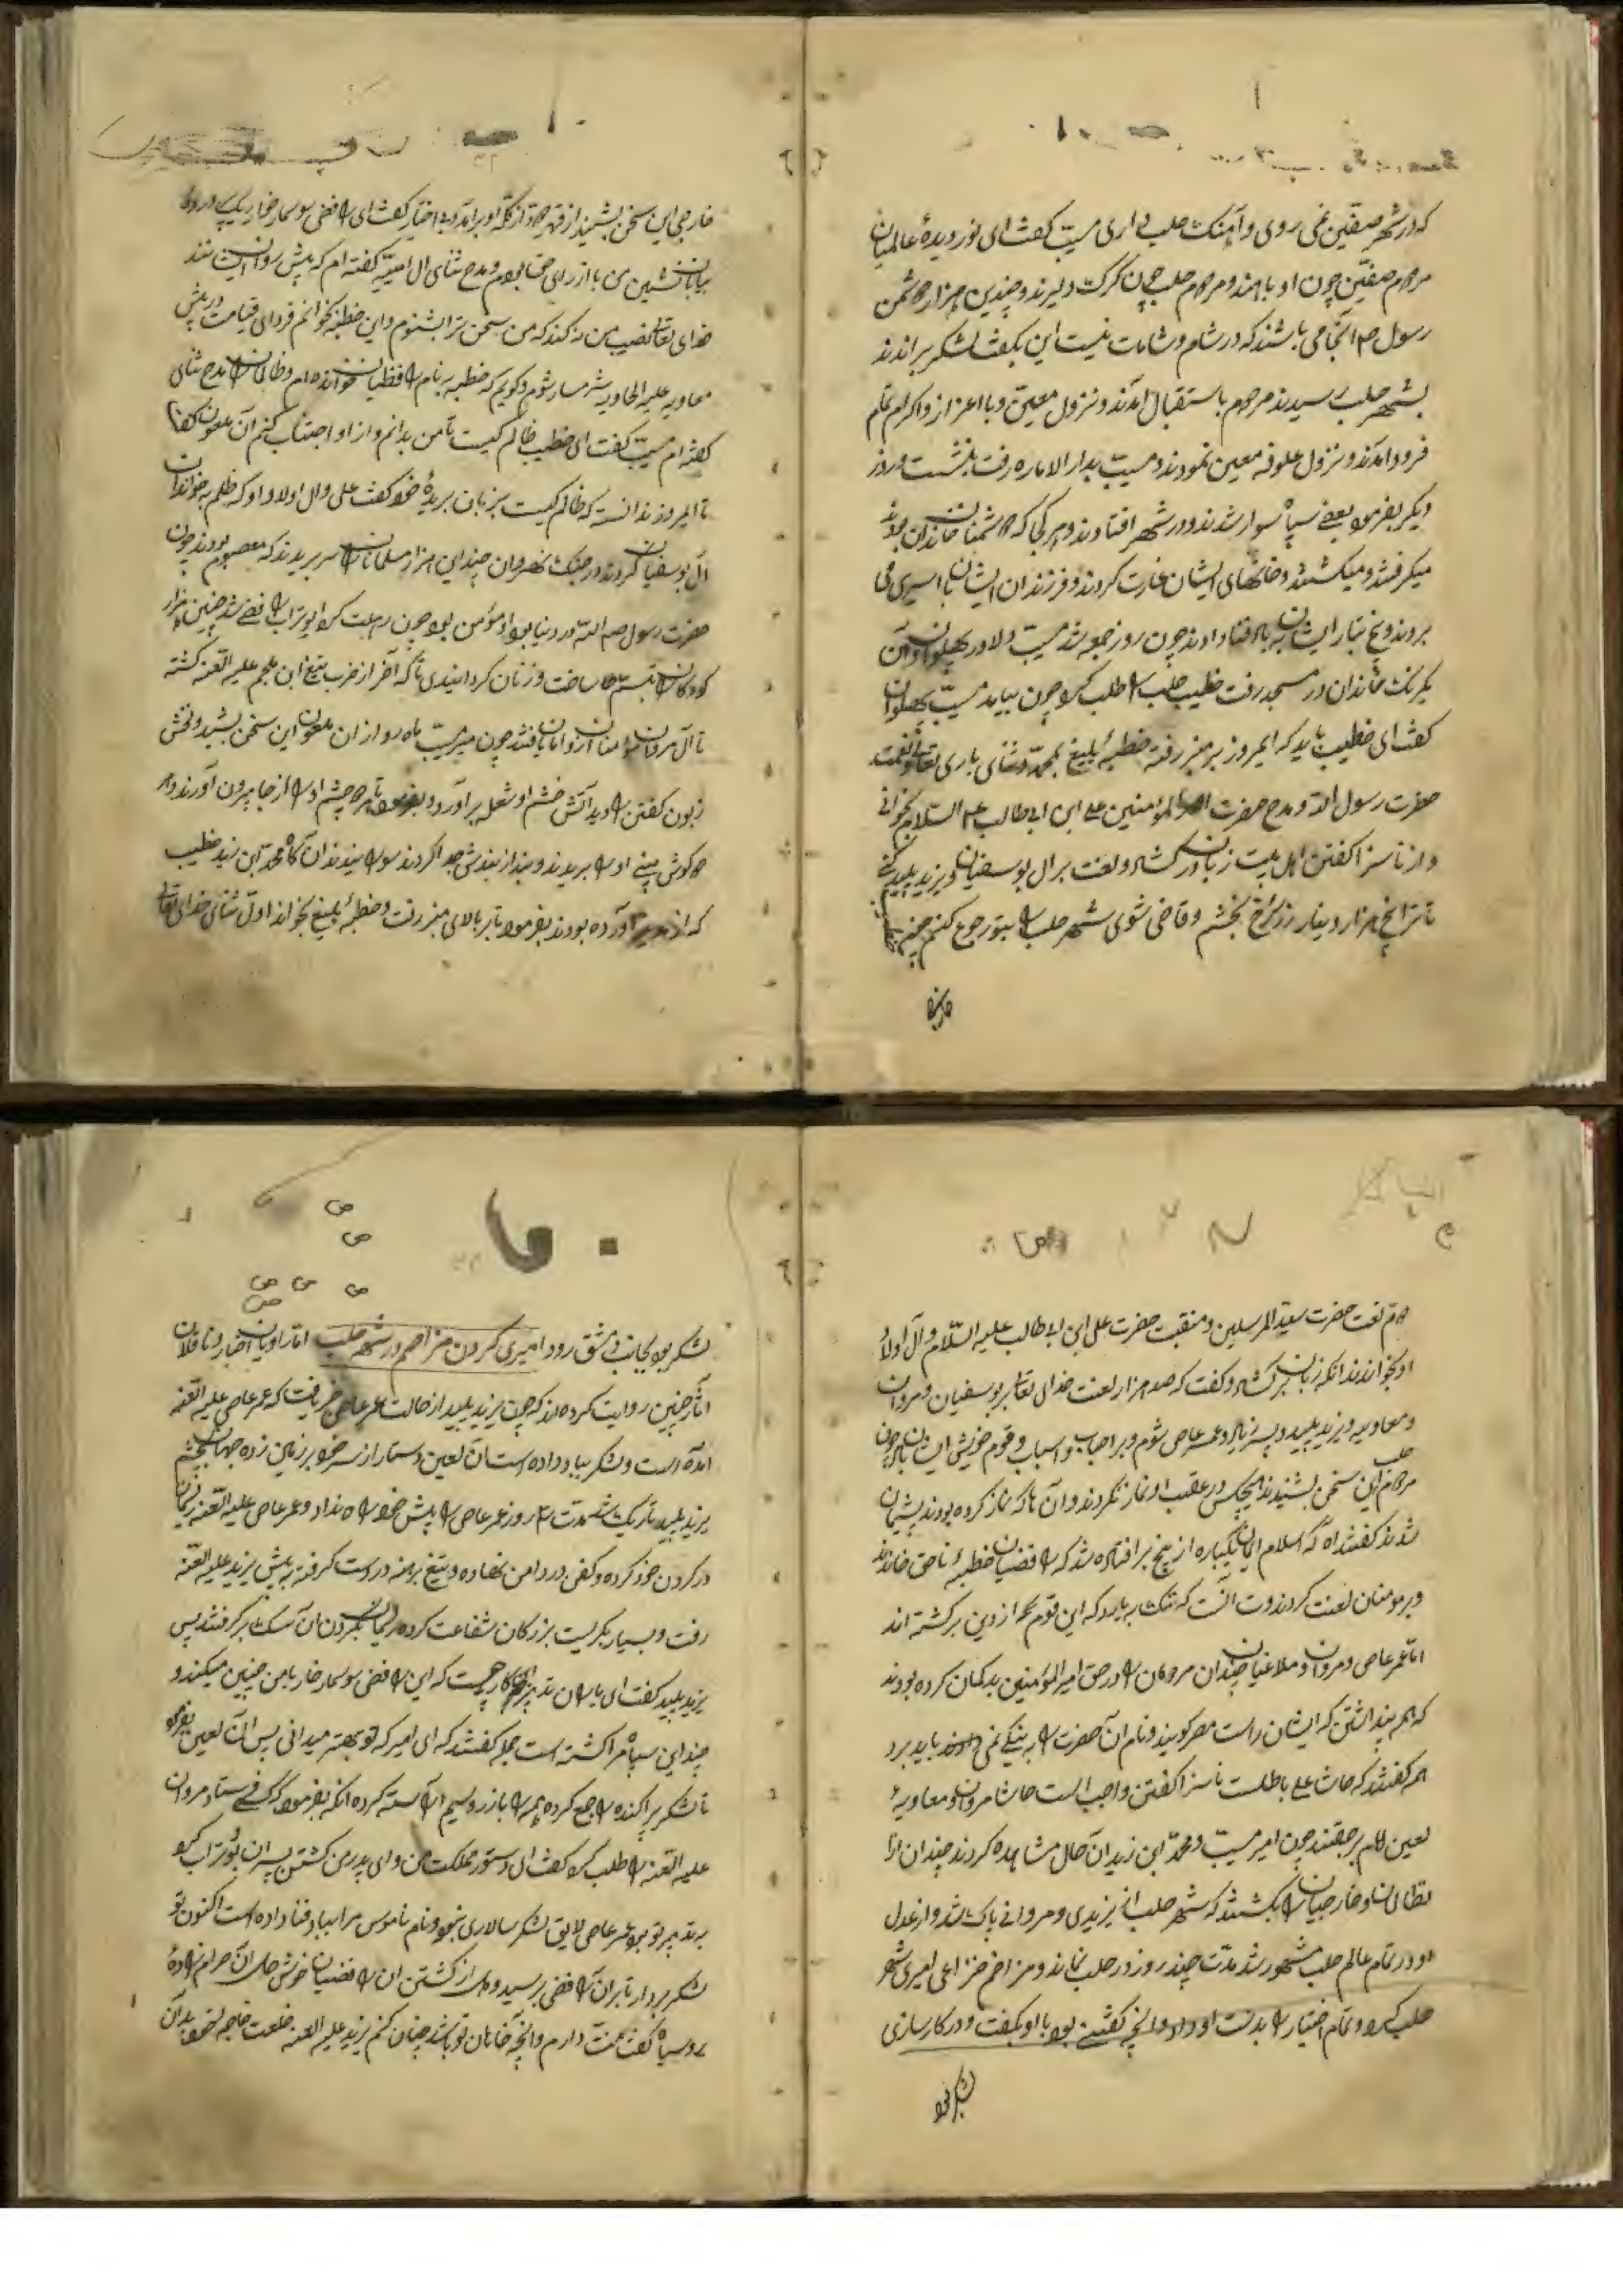 که در شهر صفین نمی روی و آهنک حلب داری مسیب کفت ای نور دیدهٔ عالمیان
مردم صفین چون او باهند و مردم حلب چون کرک دلیرند و چندین هزار دشمن
رسول در آنجا می باشند که در شام و شامات نیست این بکفت لشکر براندند
بشهر حلب رسیدند مردم باستقبال آمدند و نزول معین و با اعزاز و اکرام تمام
فرود آمدند و نزول علوفه معین نمودند و مسیب بدار الاماره رفت بنشست و روز
دیکر بفرمود بعضی سپاه سوار شدند و در شهر افتادند و هر کجا که دشمنان خاندان بودند
میکرفتند و میکشتند و خانهای ایشان غارت کردند و فرزندان ایشان باسیری می
بردند و بیخ تبار ایشان بباد فنا دادند چون روز جمعه شد مسیب دلاور پهلوان و آن
یکرنک خاندان در مسجد رفت خطیب حلب را طلب کرد چون بیامد مسیب پهلوان
کفت ای خطیب باید که امروز بر منبر رفته خطبهٔ بلیغ بحمد و ثنای باری تعالی و نعت
حضرت رسول الله و مدح حضرت امیر المؤمنین علی ابن ابی طالب علیه السلام بخوانی
و از ناسزا کفتن اهل بیت زبان در کشی و لعنت بر ال بوسفیان و یزید پلید کنی
تا ترا پنج هزار دینار زر سرخ بخشم و قاضی شوی شهر حلب را بتو رجوع کنم چون
خارجی این سخن بشنید از قهر دود از کله او برآمد و بی اختیار کفت ای رافضی سوسمار خوار
بیابان نشین من با از رای حق بودم و مدح ثنای ال امیه کفته ام که پیش روان
خدای تعالی نصیب من نکند که من سخن ترا بشنوم و این خطبه بخوانم فردای قیامت در پیش
معاویه علیه الهاویه شرمسار شوم و کویم که خطبه به نام رافضیان خوانده ام و ظالمان را مدح ثنای
کفته ام مسیب کفت ای خطیب ظالم کیست تا من بدانم و از او اجتناب کنم آن ملعون کفت
تا امروز ندانسته که ظالم کیست بزبان بریدهٔ خود کفت علی و ال اولاد او که ظلم بخاندان
ال بوسفیان کردند در جنک نهروان چندین هزار مسلمانان را سر بریدند که معصوم بودند چون
حضرت رسول صم الله در دنیا بود او مؤمن بود چون رحلت کرد ابوتراب رافضی شد چنین هزار
کودکان را یتیم ساخت و زنان کردانیدی تا که آخر از ضرب تیغ ابن ملجم علیه اللعنه کشته
تا آل مروان مؤمنان از او امان یافتند چون میر مسیب ماه رو از ان ملعون این سخن بشنید و فحش
زبون کفتن را دید آتش خشم او شعله برآورد و بفرمود تا هر دو چشم او را از جا بیرون آوردند و
کوش بینی او را بریدند و بند از بندش جدا کردند سوزانیدند آن کاه محمد ابن زید خطیب
که از آورده بودند بفرمود تا بر بالای منبر رفت و خطبهٔ بلیغ بخواند اول ثنای خدای تعالی
دوم نعت حضرت سید المرسلین و منقبت حضرت علی ابن ابی طالب علیه السلام و آل اولاد
او بخواندند آنکه زبان برکشاد و کفت که صد هزار لعنت خدای تعالی بر بوسفیان و مروان
و معاویه و یزید پلید و پسر زیاد و عمر عاص شوم و بر اصحاب و اسباب و قوم خویش ایشان باد چون
مردم حلب این سخن بشنیدند هیچکس در عقب او نماز نکردند و آن ها که نماز کرده بودند پشیمان
شدند کفتند آه که اسلام ایمان یکباره از بیخ بر افتاده شد که رافضیان خطبهٔ ناحق خواندند
و بر مومنان لعنت کردند وقت آنست که سنک ببارد که این قوم همه از دین برکشته اند
اما عمر عاص و مروان و ملاعینان چندان مردمان را در حق امیر المؤمنین بد کمان کرده بودند
که همه پنداشتن که ایشان راست میکویند و نام آن حضرت را به نیکی نمی باید برد
همه کفتند که حاشا علی باطلست ناسزا کفتن واجب است حاشا مروان و معاویهٔ
لعین لام برحقند چون امیر مسیب و محمد ابن زید آن حال مشاهده کردند چندان از
ظالمان و خارجیان را بکشتند که شهر حلب از یزیدی و مروانی پاک شد و از عدل
او در تمام عالم حلب مشهور شد مدت چند روز در حلب نماند و مزاحم خزاعی امیری شهر
حلب کرد و تمام اختیار را بدست او داد و آنچه کفتنی بود با او بکفت و در کار سازی
لشکر بود
لشکر بود بجانب دمشق رود امیری کردن مزاحم در شهر حلب اما راویان اخبار و ناقلان
آثار چنین روایت کرده اند که چون یزید پلید از حالت عمر عاص خبر یافت که عمر عاص علیه اللعنه
آمده است و لشکر بباد داده است آن لعین دستار از سر خود بر زمین زده جهان بچشم
یزید پلید تاریک شد مدت ۳ روز عمر عاص را پیش خود راه نداد و عمر عاص علیه اللعنه ریسمان
در کردن خود کرده و کفن در دامن نهاده و تیغ برهنه در دست کرفته به پیش یزید علیه اللعنه
رفت و بسیار بکریست بزرکان شفاعت کرده ریسمان بکردن آن سک بر کرفتند پس
یزید پلید کفت ای یاران تدبیر این کار چیست که این رافضی سوسمار خار با من چنین میکند و
چندین سپاه مرا کشته است جمله کفتند که ای امیر که تو بهتر میدانی پس آن لعین بفرمود
تا لشکر پراکنده را جمع کرده همه را باز زر و سیم آراسته کرده آنکه بفرمود که کس فرستاد مروان
علیه اللعنه را طلب کرد کفت ای دستور مملکت من و ای پدر من کشتن پسران بوتراب که
به تدبیر تو بود عمر عاص لایق لشکر سالاری نبود و نام ناموس مرا بباد فنا داده است اکنون تو
لشکر بردار تا بر آن رافضی برسید و دل از کشتن ان رافضیان خوش آن حرام زادهٔ
روسیاه کفت منت دارم و آنچه خاهان تو باشد چنان کنم یزید علیه العنه خلعت خاصه بدان